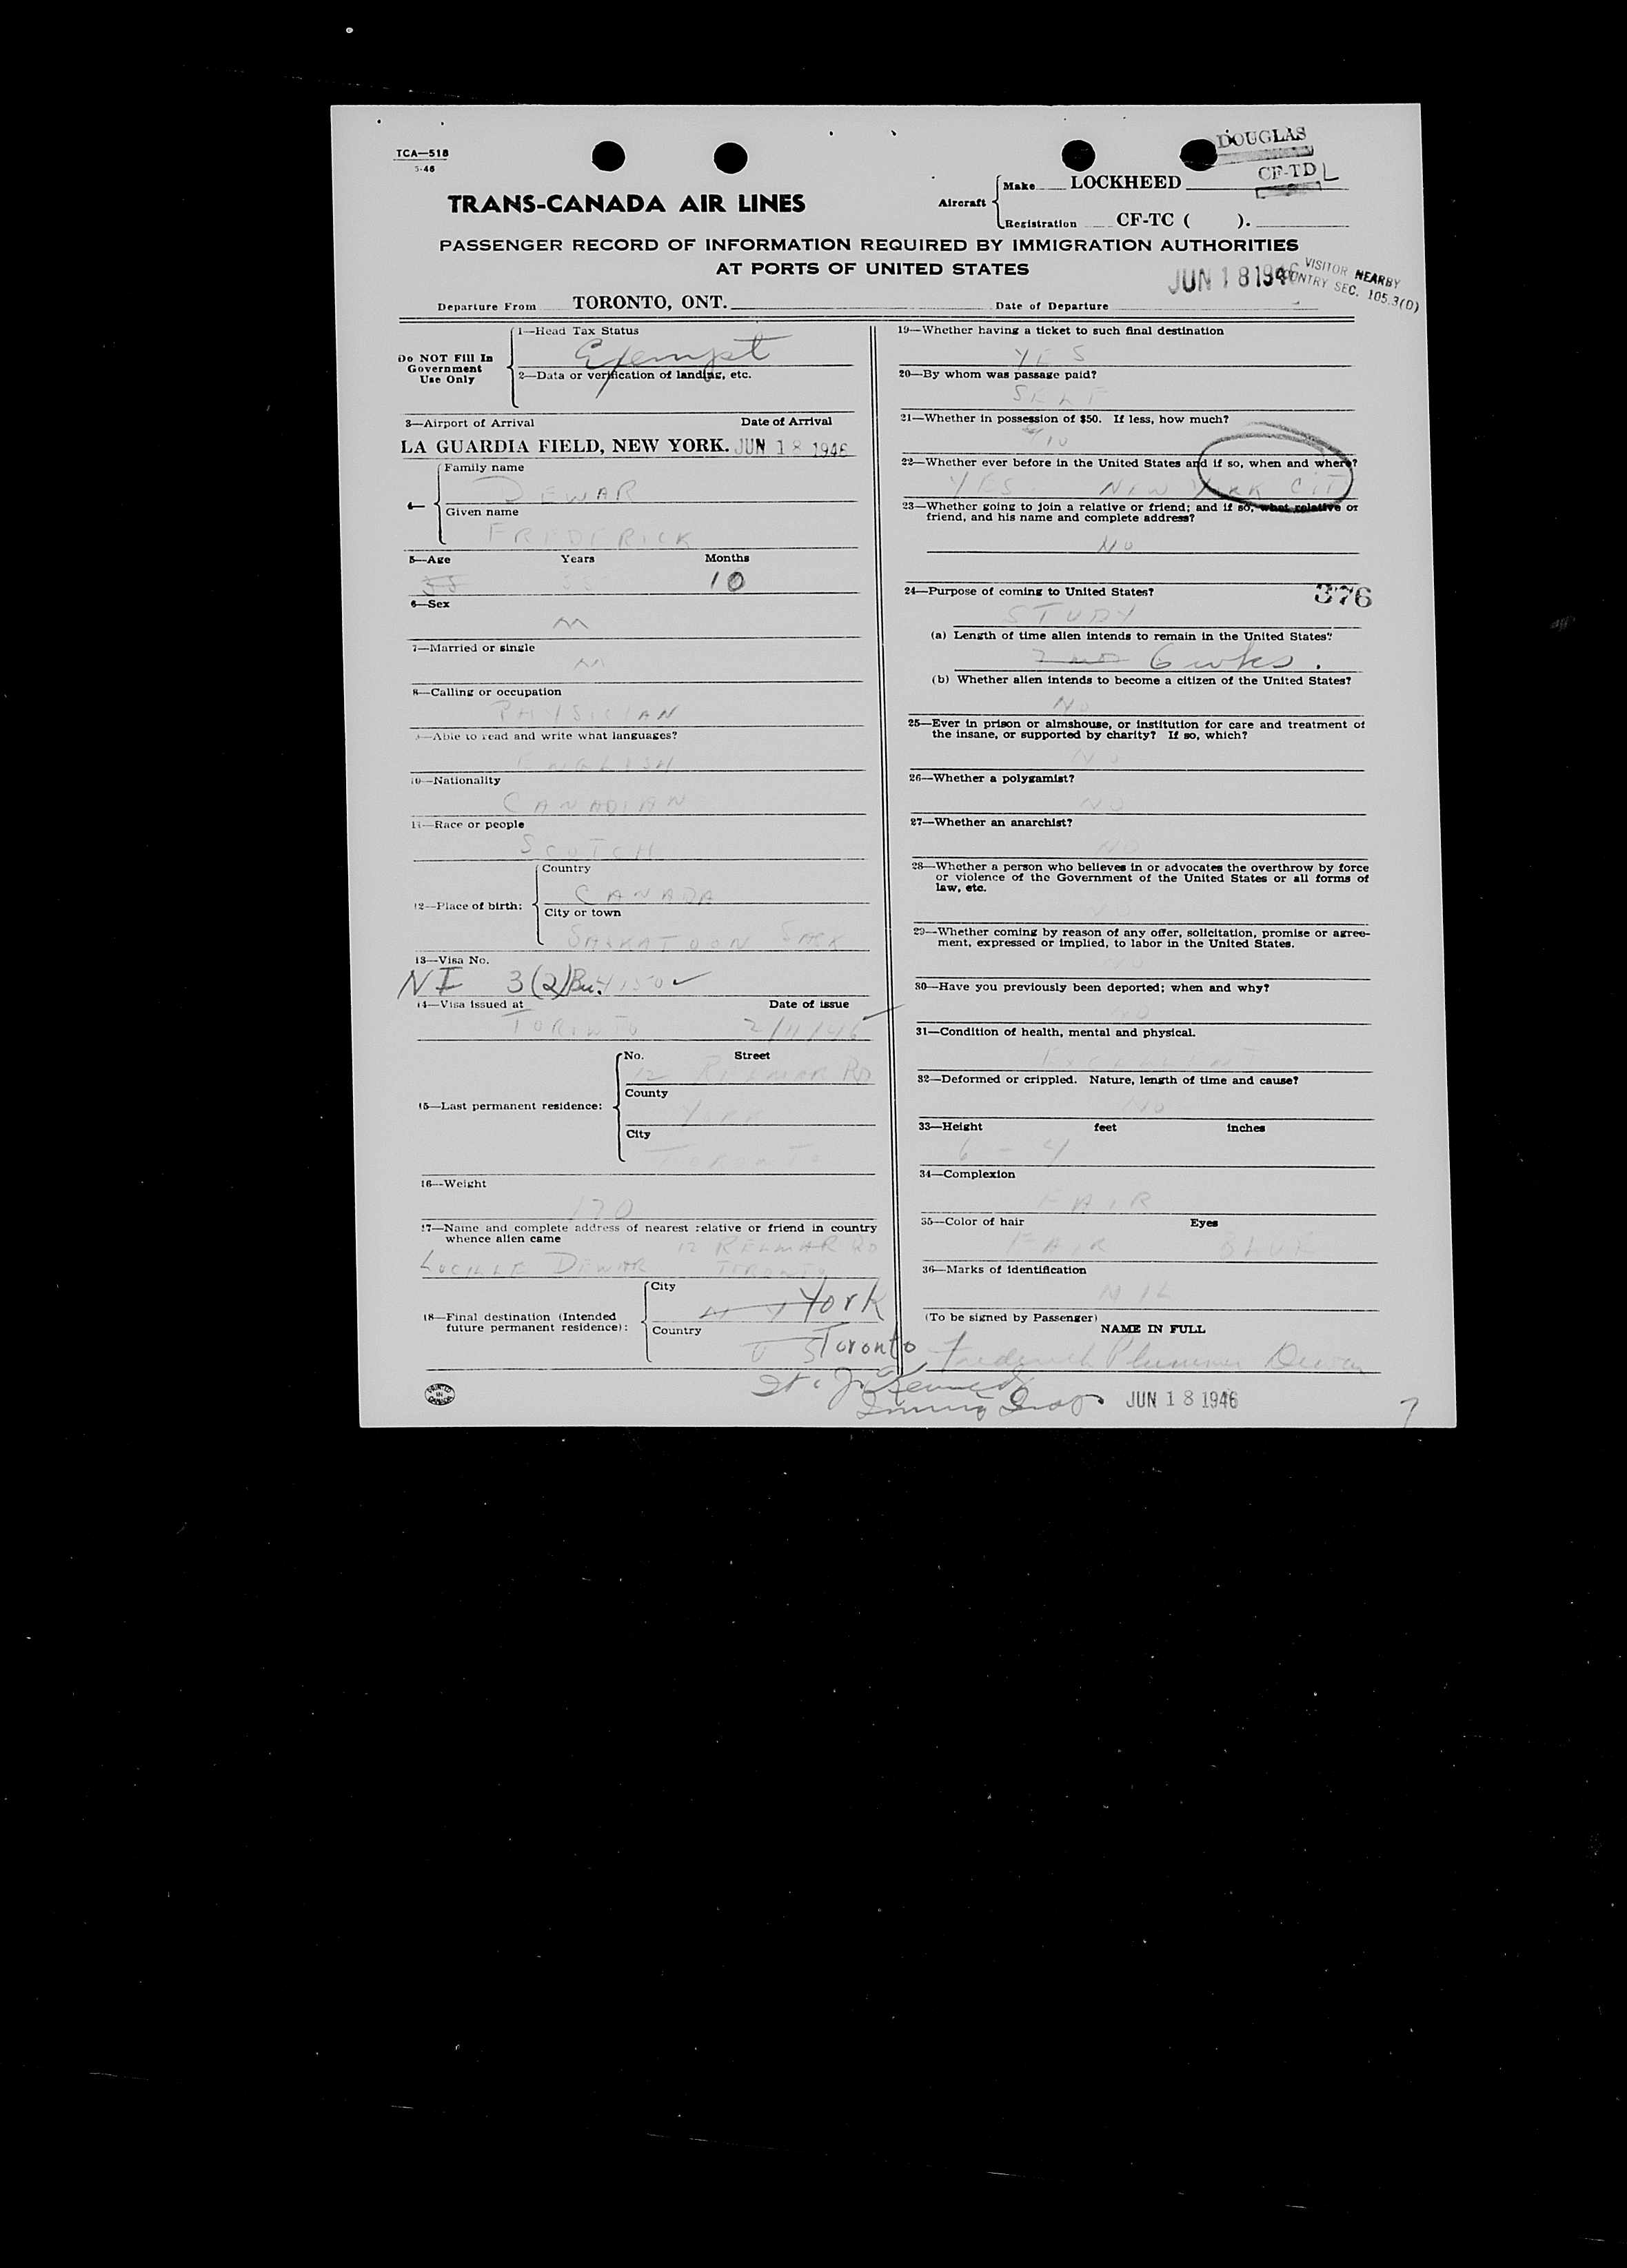 TCA—518
5-46
DOUGLAS
CF-TD L
TRANS-CANADA AIR LINES
Aircraft
Make LOCKHEED
Registration CF-TC ( ).
PASSENGER RECORD OF INFORMATION REQUIRED BY IMMIGRATION AUTHORITIES
AT PORTS OF UNITED STATES
JUN 18 1946
VISITOR NEARBY
COUNTRY SEC. 105.3(D)
Departure From TORONTO, ONT. Date of Departure
Do NOT Fill In
Government
Use Only
1—Head Tax Status
Exempt
2—Data or verification of landing, etc.
3—Airport of Arrival Date of Arrival
LA GUARDIA FIELD, NEW YORK. JUN 18 1946
Family name
DEWAR
Given name
FREDERICK
5—Age Years Months
35 35 10
6—Sex
M
7—Married or single
M
8—Calling or occupation
PHYSICIAN
9—Able to read and write what languages?
ENGLISH
10—Nationality
CANADIAN
11—Race or people
SCOTCH
12—Place of birth:
Country
CANADA
City or town
SASKATOON SASK
13—Visa No.
NI 3(2)
14—Visa issued at Date of issue
TORONTO 2/11/46
15—Last permanent residence:
No. Street
12 RELMAR RD
County
YORK
City
TORONTO
16—Weight
170
17—Name and complete address of nearest relative or friend in country
whence alien came
12 RELMAR RD
LUCILLE DEWAR TORONTO
18—Final destination (Intended
future permanent residence):
City
N Y York
Country
U S Toronto
PRINTED
IN
CANADA
19—Whether having a ticket to such final destination
YES
20—By whom was passage paid?
SELF
21—Whether in possession of $50. If less, how much?
22—Whether ever before in the United States and if so, when and where?
YES. NEW YORK CIT
23—Whether going to join a relative or friend; and if so, what relative or
friend, and his name and complete address?
NO
24—Purpose of coming to United States? 376
STUDY
(a) Length of time alien intends to remain in the United States?
6 wks.
(b) Whether alien intends to become a citizen of the United States?
NO
25—Ever in prison or almshouse, or institution for care and treatment of
the insane, or supported by charity? If so, which?
NO
26—Whether a polygamist?
NO
27—Whether an anarchist?
NO
28—Whether a person who believes in or advocates the overthrow by force
or violence of the Government of the United States or all forms of
law, etc.
NO
29—Whether coming by reason of any offer, solicitation, promise or agree-
ment, expressed or implied, to labor in the United States.
NO
30—Have you previously been deported; when and why?
NO
31—Condition of health, mental and physical.
EXCELLENT
32—Deformed or crippled. Nature, length of time and cause?
NO
33—Height feet inches
6 - 4
34—Complexion
FAIR
35—Color of hair Eyes
FAIR BLUE
36—Marks of identification
NIL
(To be signed by Passenger)
NAME IN FULL
Frederick Plummer Dewar
Kennedy
Immig Insp. JUN 18 1946